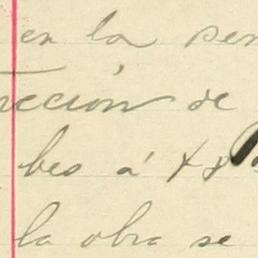 en la pen
rección de
bes á 48
la obra se